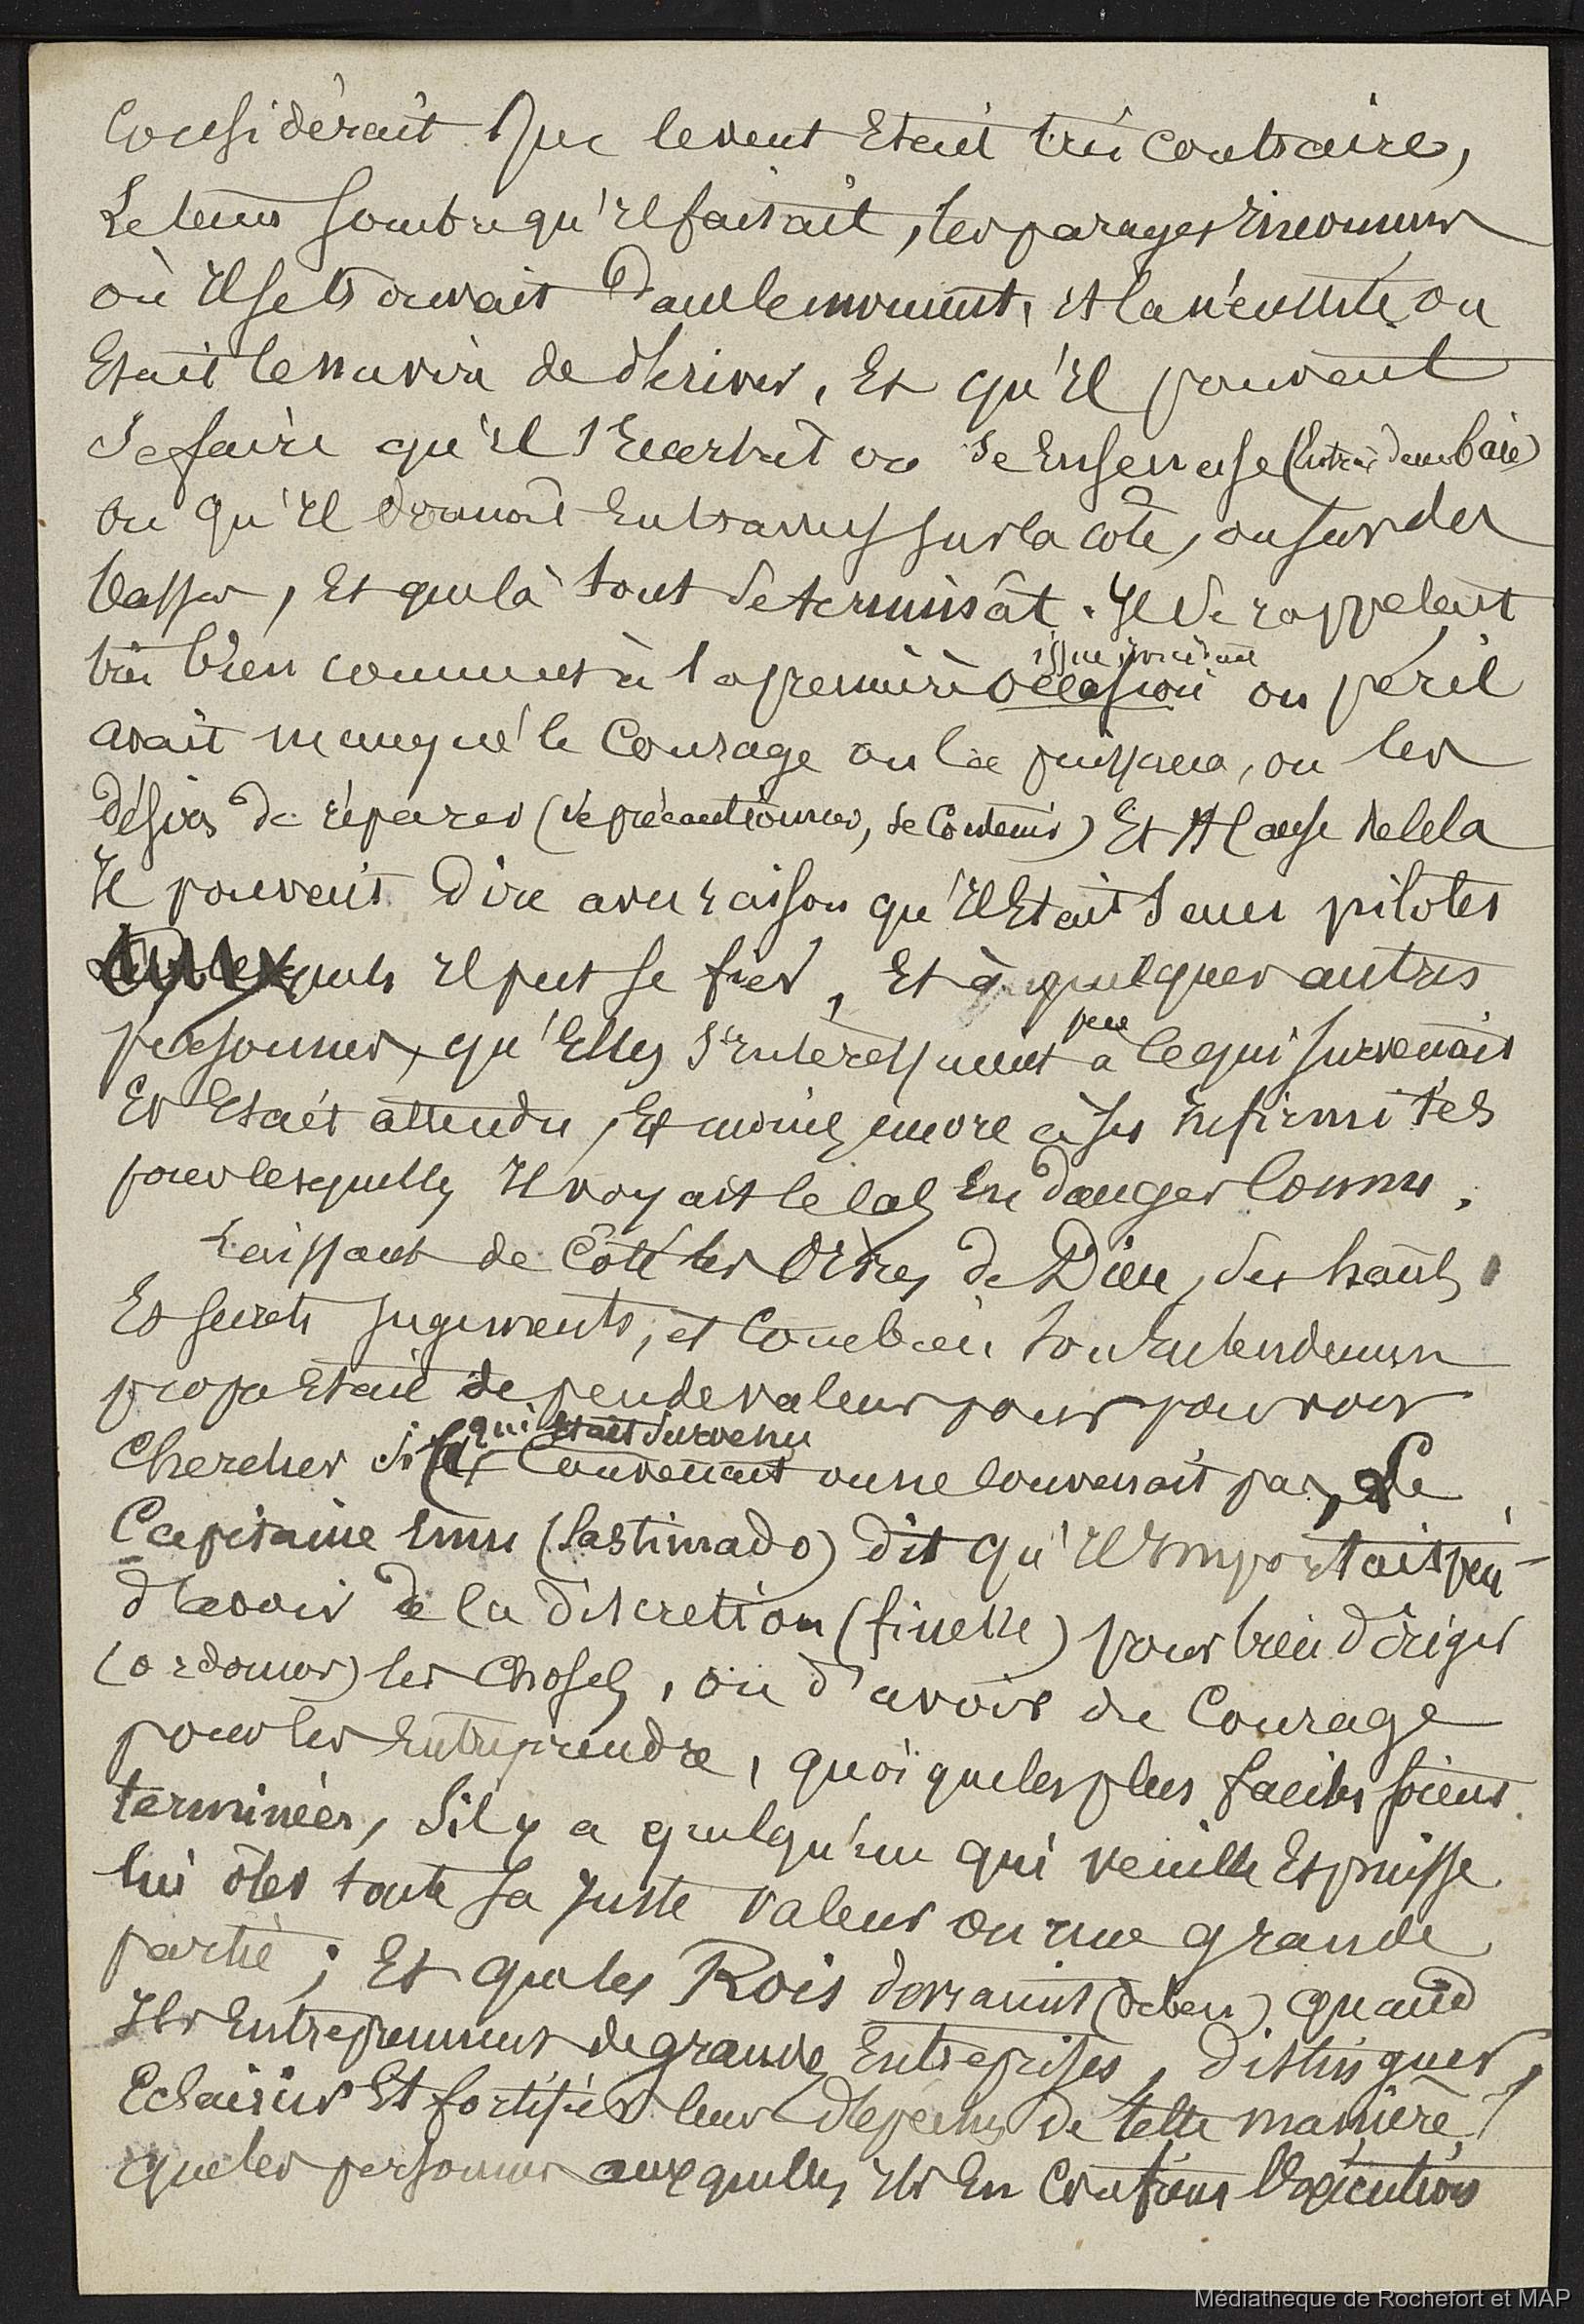 Considérait que le vent Etait très contraire,
Le tems sombre qu'Il faisait, les parages Inconnus
où Il se trouvait dans le moment, Et la nécessité où
Etait le navire de dériver, Et qu'Il pouvait
se faire qu'Il s'Ecartat ou se Ensenase (Entrer dans baie)
ou qu'Il donnat En travers sur la côte, ou sur des
basses, Et que là tout se terminât. Il se rappelait
très bien comment à la première occasion ou péril
avait manqué le Courage ou la puissance, ou les
désirs de réparer (se précautionner, se Contenir) Et A Cause de Cela
Il pouvait dire avec raison qu'Il Etait sans pilotes
auxquels Il put se fier, Et à quelques autres
personnes, qu'Elles s'Intéressaient peu à Ce qui survenait
Et Etait attendu, Et moins encore à ses Infirmités
pour lesquelles Il voyait le Cas En danger Connu.
Laissant de Côté les Ordres de Dieu, ses hauts
Et secrets jugements, et Combien son Entendement
propre Etait de peu de valeur pour pouvoir
qui Etait survenu
Chercher si Ce Convenait ou ne Convenait pas, Le
Capitaine Emu (lastimado) dit qu'Il Importait peu
d'avoir de la discretion (finesse) pour bien diriger
(ordonner) les Choses, ou d'avoir du Courage
pour les Entreprendre, quoique les plus faciles soient
terminées, s'il y a quelqu'un qui veuille Et puisse
lui ôter toute sa juste valeur ou une grande
partie; Et que les Rois devraient (deben) quand
Ils Entreprennent de grandes Entreprises, distinguer,
Eclaircir Et fortifier leurs dépêches de telle manière,
que les personnes auxquelles Ils En Confient l'Exécution
Médiathèque de Rochefort et MAP